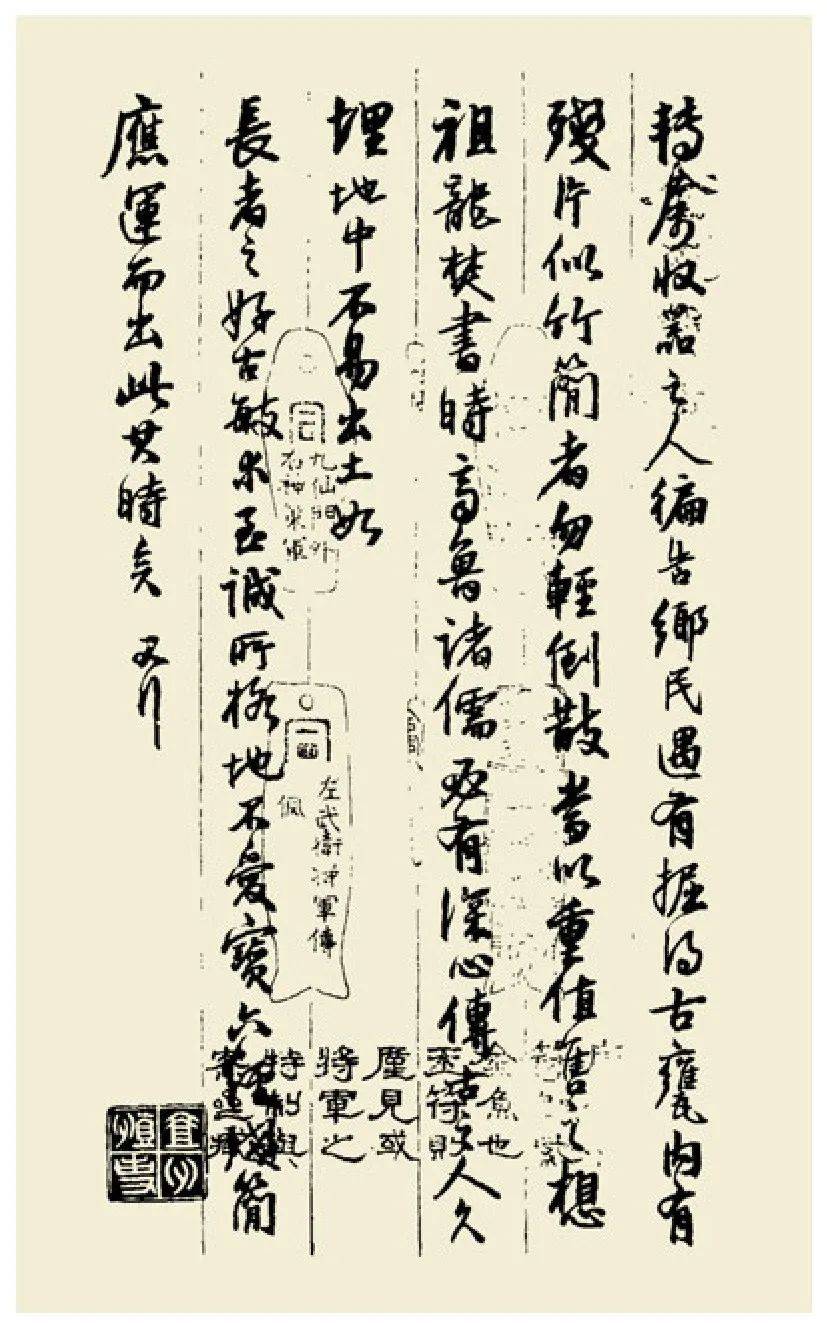 轉屬收器之人徧告鄉民遇有掘得古甕内有
殘片似竹簡者勿輕倒散當以重值售之想
祖龍焚書時齊魯諸儒必有深心傳古之人久
埋地中不易出土如
長者之好古敏求至誠所格地不愛寶六經漆簡
應運而出此其時矣 又
九仙門外
右神策軍
左武衛將軍傳
佩
金魚也
玉符則
廑見或
將軍之
特制與